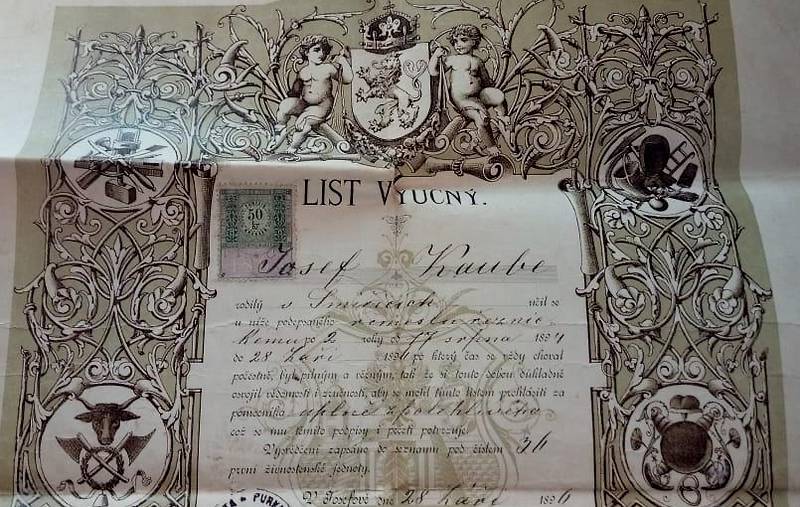 LIST VÝUČNÝ.
50
Josef Kaube
rodilý v Smiřicích učil se
u níže podepsaného řemeslu řeznic-
kému po 2 roky od 17 srpna 1894
do 28 Září 1896 po který čas se vždy choval
počestně, byl pilným a věrným, tak že si touto dobou důkladně
osvojil vědomosti i zručnosti, aby se mohl tímto listem prohlásiti za
pomocníka úplně způsobilého
což se mu těmito podpisy i pečetí potvrzuje.
Vysvědčení zapsáno do seznamu pod číslem 36
první živnostenské jednoty.
V Josefově dne 28 Září 1896